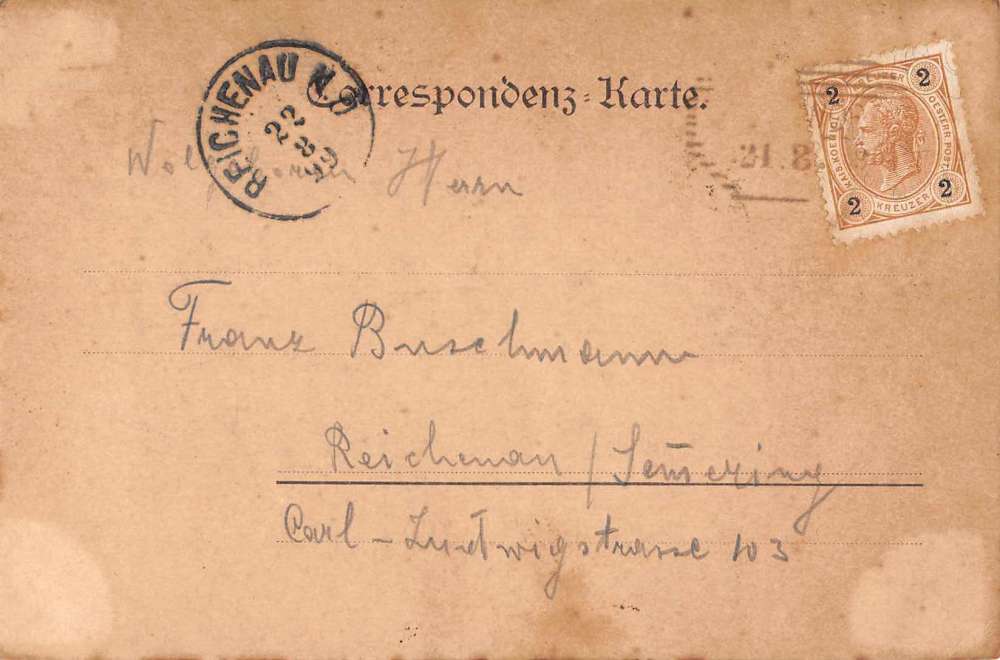 Correspondenz-Karte.
REICHENAU N.Ö.
22
8
99
2 KREUZER 2
KAIS. KOENIGL. OESTERR. POST.
2 KREUZER 2
Wohlgeboren Herrn
Franz Buschmann
Reichenau / Sem̅ering
Carl-Ludwigstrasse 103